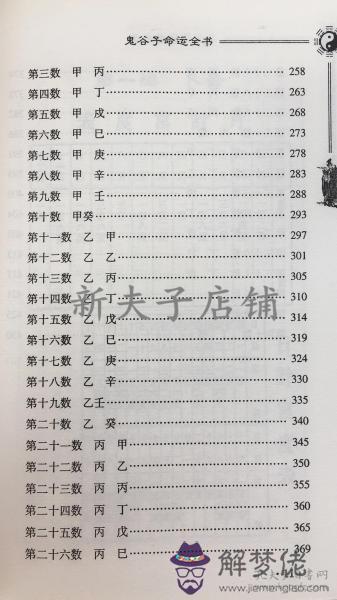 鬼谷子命运全书
第三数 甲 丙 258
第四数 甲 丁 263
第五数 甲 戌 268
第六数 甲 巳 273
第七数 甲 庚 278
第八数 甲 辛 283
第九数 甲 壬 288
第十数 甲癸 293
第十一数 乙 甲 297
第十二数 乙 乙 301
第十三数 乙 丙 305
第十四数 乙 丁 310
第十五数 乙 戊 314
第十六数 乙 巳 319
第十七数 乙 庚 324
第十八数 乙 辛 330
第十九数 乙壬 335
第二十数 乙 癸 340
第二十一数 丙 甲 345
第二十二数 丙 乙 350
第二十三数 丙 丙 355
第二十四数 丙 丁 360
第二十五数 丙 戊 365
第二十六数 丙 巳 369
新夫子店铺
解梦佬
www.jiemenglao.com